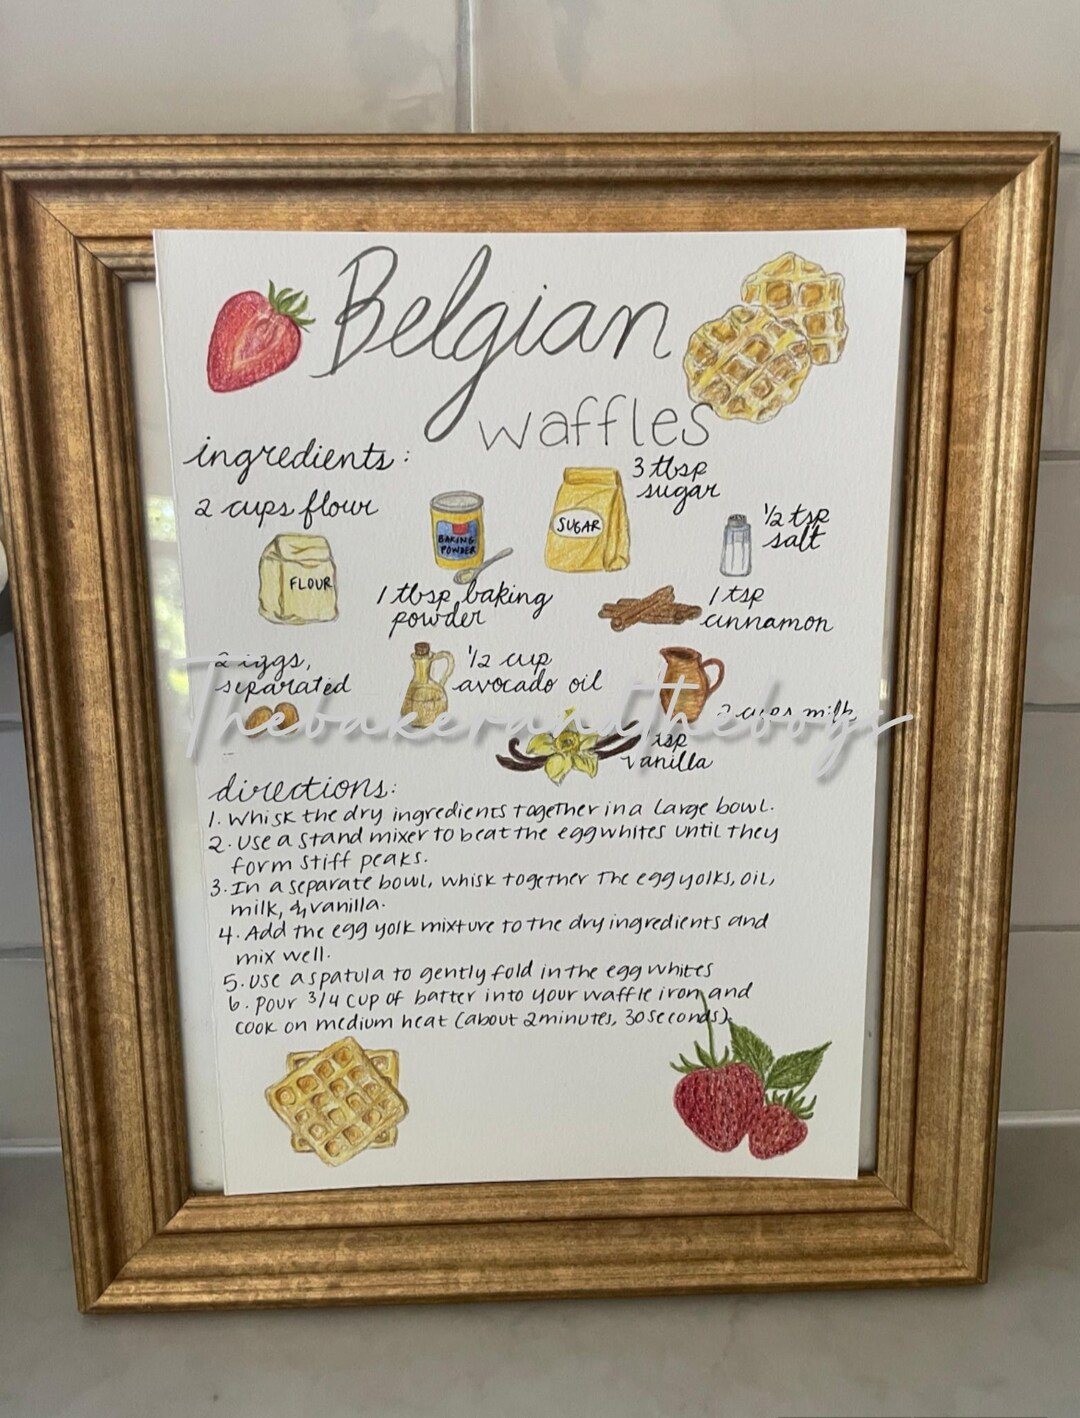 Belgian
waffles
ingredients:
3 tbsp
sugar
2 cups flour
1/2 tsp
salt
SUGAR
BAKING
POWDER
FLOUR
1 tbsp baking
powder
1 tsp
cinnamon
2 eggs,
separated
1/2 cup
avocado oil
2 cups milk
Thebakerandtheboys
tsp
vanilla
directions:
1. Whisk the dry ingredients together in a large bowl.
2. Use a stand mixer to beat the egg whites until they
form stiff peaks.
3. In a separate bowl, whisk together the egg yolks, oil,
milk, & vanilla.
4. Add the egg yolk mixture to the dry ingredients and
mix well.
5. Use a spatula to gently fold in the egg whites
6. Pour 3/4 cup of batter into your waffle iron and
cook on medium heat (about 2 minutes, 30 seconds).